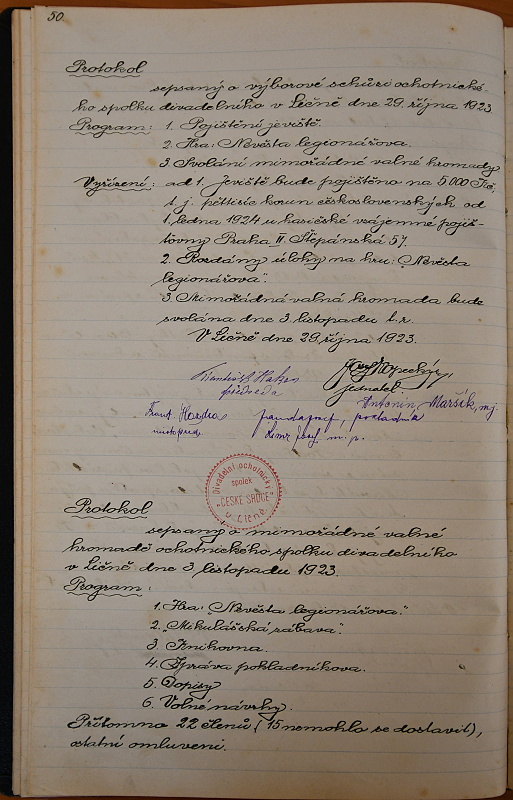 50.
Protokol
sepsaný o výborové schůzi ochotnické-
ho spolku divadelního v Líčně dne 29. října 1923.
Program: 1. Pojištění jeviště.
2. Hra: Nevěsta legionářova.
3. Svolání mimořádné valné hromady
Vyřízení: ad 1. Jeviště bude pojištěno na 5.000 Kč,
t. j. pěttisíc korun československých od
1. ledna 1924 u hasičské vzájemné pojiš-
ťovny Praha II. Štěpánská 57.
2. Rozdány úlohy na hru: "Nevěsta
legionářova".
3. Mimořádná valná hromada bude
svolána dne 3. listopadu t. r.
V Líčně dne 29. října 1923.
předseda
jednatel.
Antonín Maršík, mj.
Frant. pokladník
m. p.
Divadelní ochotnický
spolek
"ČESKÉ SRDCE"
v Líčně
Protokol
sepsaný o mimořádné valné
hromadě ochotnického spolku divadelního
v Líčně dne 3. listopadu 1923.
Program:
1. Hra: "Nevěsta legionářova."
2. "Mikulášská zábava".
3. Knihovna.
4. Zpráva pokladníkova.
5. Dopisy
6. Volné návrhy.
Přítomno 22 členů (15 nemohlo se dostavit),
ostatní omluveni.